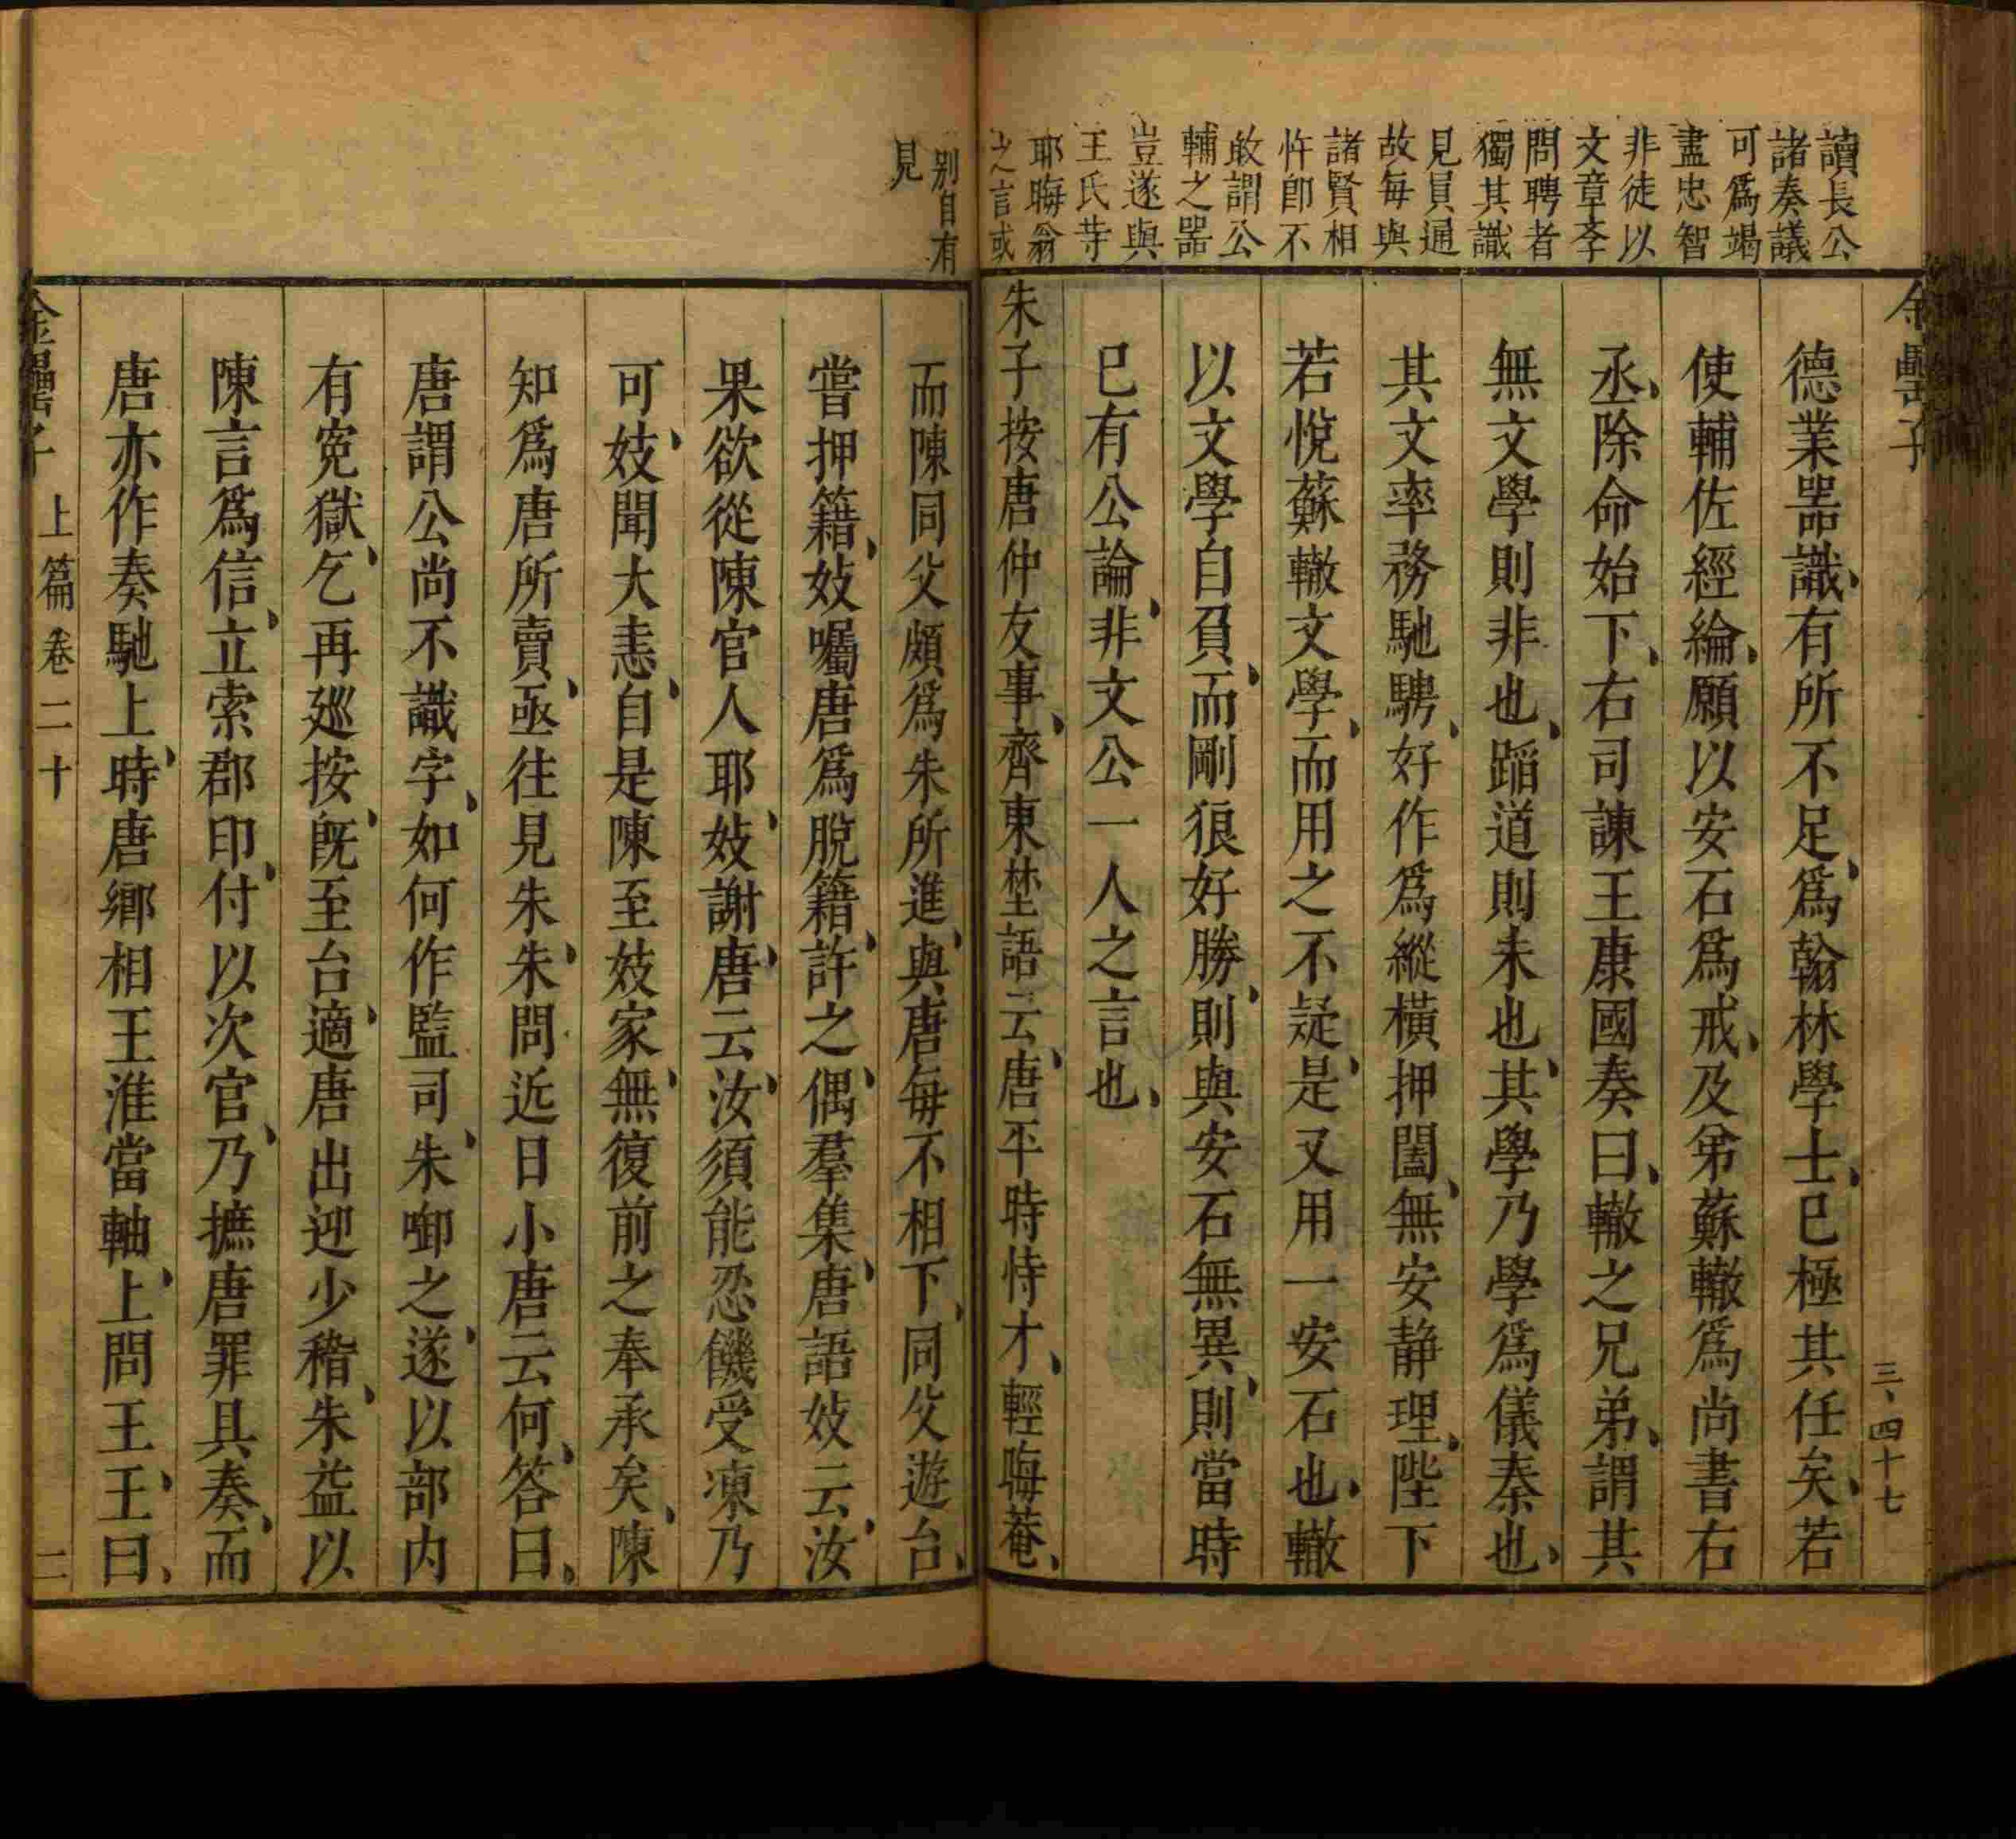 讀長公
諸奏議
可爲竭
盡忠智
非徒以
文章李
問聘者
獨其識
見員通
故每與
諸賢相
忤卽不
敢謂公
輔之噐
豈遂與
王氏䓁
耶晦翁
之言或
金罍子
三、四十七
德業噐識、有所不足、爲翰林學士、已極其任矣、若
使輔佐經綸、願以安石爲戒、及弟蘇轍爲尚書右
丞、除命始下、右司諫王康國奏曰、轍之兄弟、謂其
無文學則非也、蹈道則未也、其學乃學爲儀秦也、
其文率務馳騁、好作爲縱橫押闔、無安静理、陛下
若悅蘇轍文學、而用之不疑、是又用一安石也、轍
以文學自負、而剛狠好勝、則與安石無異、則當時
已有公論、非文公一人之言也、
朱子按唐仲友事、齊東埜語云、唐平時恃才、輕晦菴、
别自有
見
而陳同父頗爲朱所進、與唐每不相下、同父遊台、
嘗押籍、妓囑唐爲脫籍、許之、偶羣集、唐語妓云、汝
果欲從陳官人耶、妓謝、唐云、汝須能忍饑受凍乃
可、妓聞大恚、自是陳至妓家、無復前之奉承矣、陳
知爲唐所賣、亟往見朱、朱問近日小唐云何、答曰、
唐謂公尚不識字、如何作監司、朱啣之、遂以部内
有寃獄、乞再廵按、旣至台、適唐出迎少稽、朱益以
陳言爲信、立索郡印、付以次官、乃摭唐罪具奏、而
唐亦作奏馳上、時唐鄉相王淮當軸、上問王、王曰、
金罍子
上篇卷二十
二